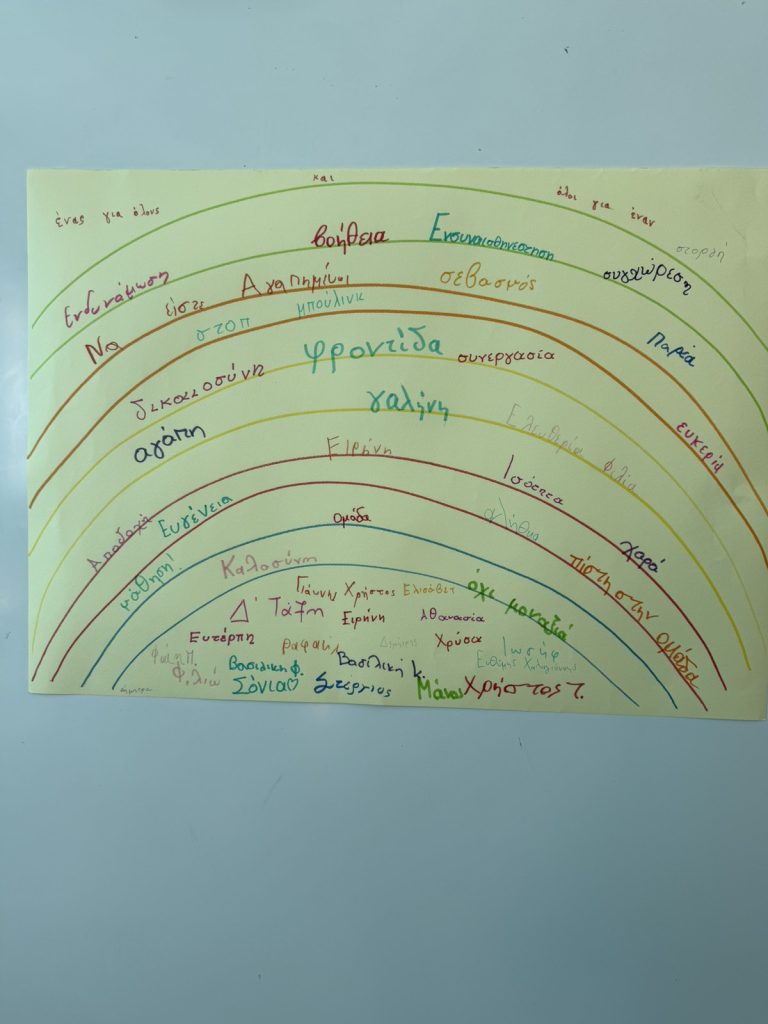 ένας για όλους και όλοι για έναν
βοήθεια Ενσυναισθηνεστηση στοργή
Ενδυνάμωση συγχώρεση
Να είστε Αγαπημένοι σεβασμός
στοπ μπούλινκ Παρέα
φροντίδα συνεργασία
δικαιοσύνη γαλήνη ευκερία
αγάπη Ελευθερία φιλία
Ειρήνη Ισότητα
Αποδοχή Ευγένεια ομάδα αλήθια χαρά
μάθηση! Καλοσύνη πίστη στην ομάδα
Γιάννης Χρήστος Ελισάβετ όχι μοναξιά
Δ' Τάξη Ειρήνη Αθανασία
Ευτέρπη Ραφαήλ Χρύσα Ιωσήφ
Φώτη Π. Βασιλική Φ. Βασιλική Κ. Ευθύμης
Φιλιώ Σόνια♡ Στέργιος Μάνος Χρήστος Τ.